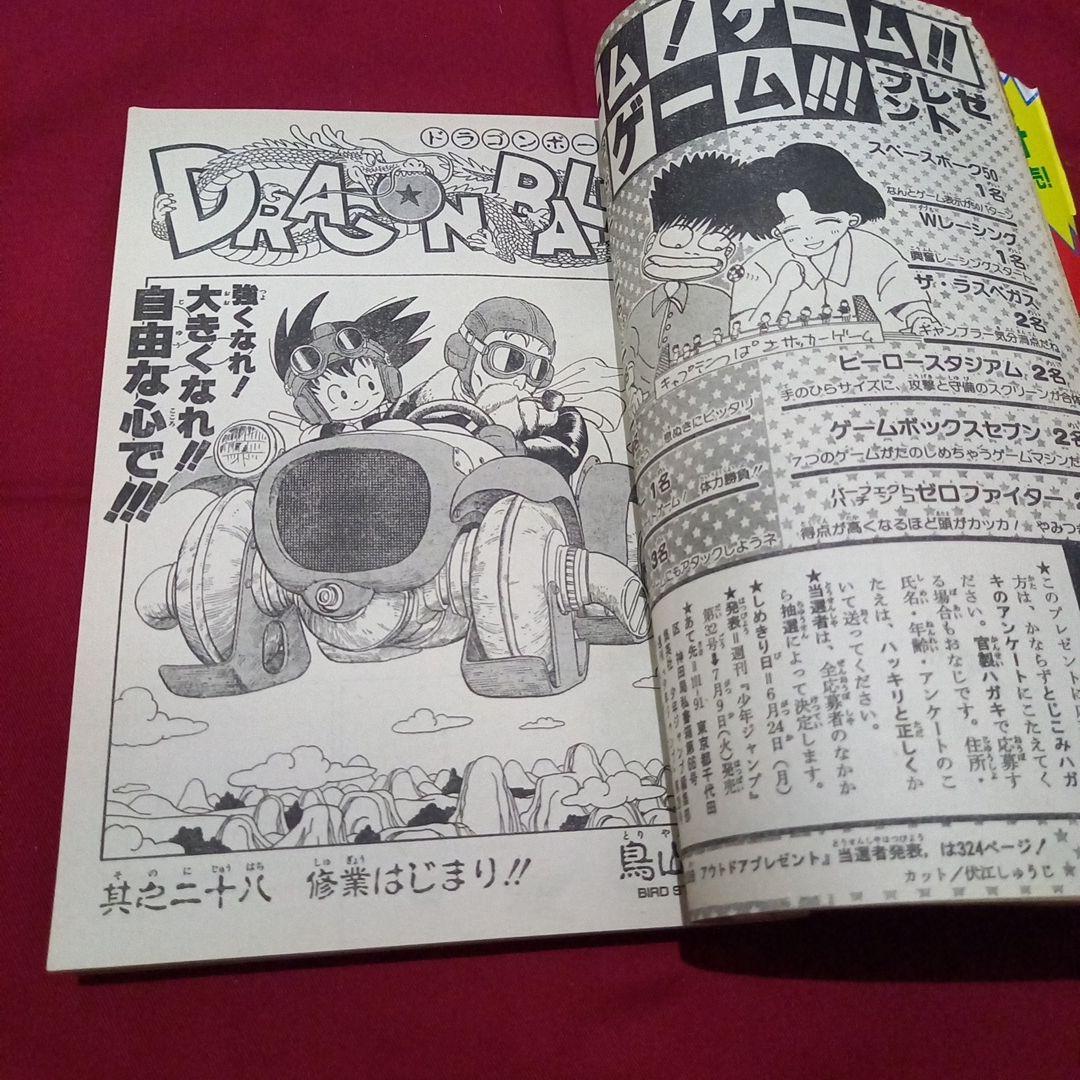 ドラゴンボー
DRAGON BAL
強くなれ!
大きくなれ!!
自由な心で!!!
其之二十八 修業はじまり!!
鳥山
BIRD S
ム!ゲーム!!
ゲーム!!!
プレゼント
スペースホーク50
1名
なんとゲーム表示が50パターン
Wレーシング
1名
興奮レーシングスタート
ザ・ラスベガス
2名
ギャンブラー気分満点だね
キャプテンつばさサッカーゲーム
ヒーロースタジアム 2名
手のひらサイズに、攻撃と守備のスクリーンが合体
息ぬきにピッタリ
ゲームボックスセブン 2名
7つのゲームがたのしめちゃうゲームマシンだ
1名
ゲーム! 体力勝負!!
パーフェクトゼロファイター
得点が高くなるほど頭がカッカ! やみつき
3名
にもアタックしようネ
★このプレゼントに
方は、かならずとじこみハガ
キのアンケートにこたえてく
ださい。官製ハガキで応募す
る場合もおなじです。住所・
氏名・年齢・アンケートのこ
たえは、ハッキリと正しくか
いて送ってください。
★当選者は、全応募者のなかか
ら抽選によって決定します。
★しめきり日=6月24日(月)
★発表=週刊『少年ジャンプ』
第32号⬇7月9日(火)発売
★あて先=〒101-91 東京都千代田
区 神田局私書箱第66号
集英社 少年ジャンプ編集部
アウトドアプレゼント』当選者発表は324ページ!
カット/伏江しゅうじ